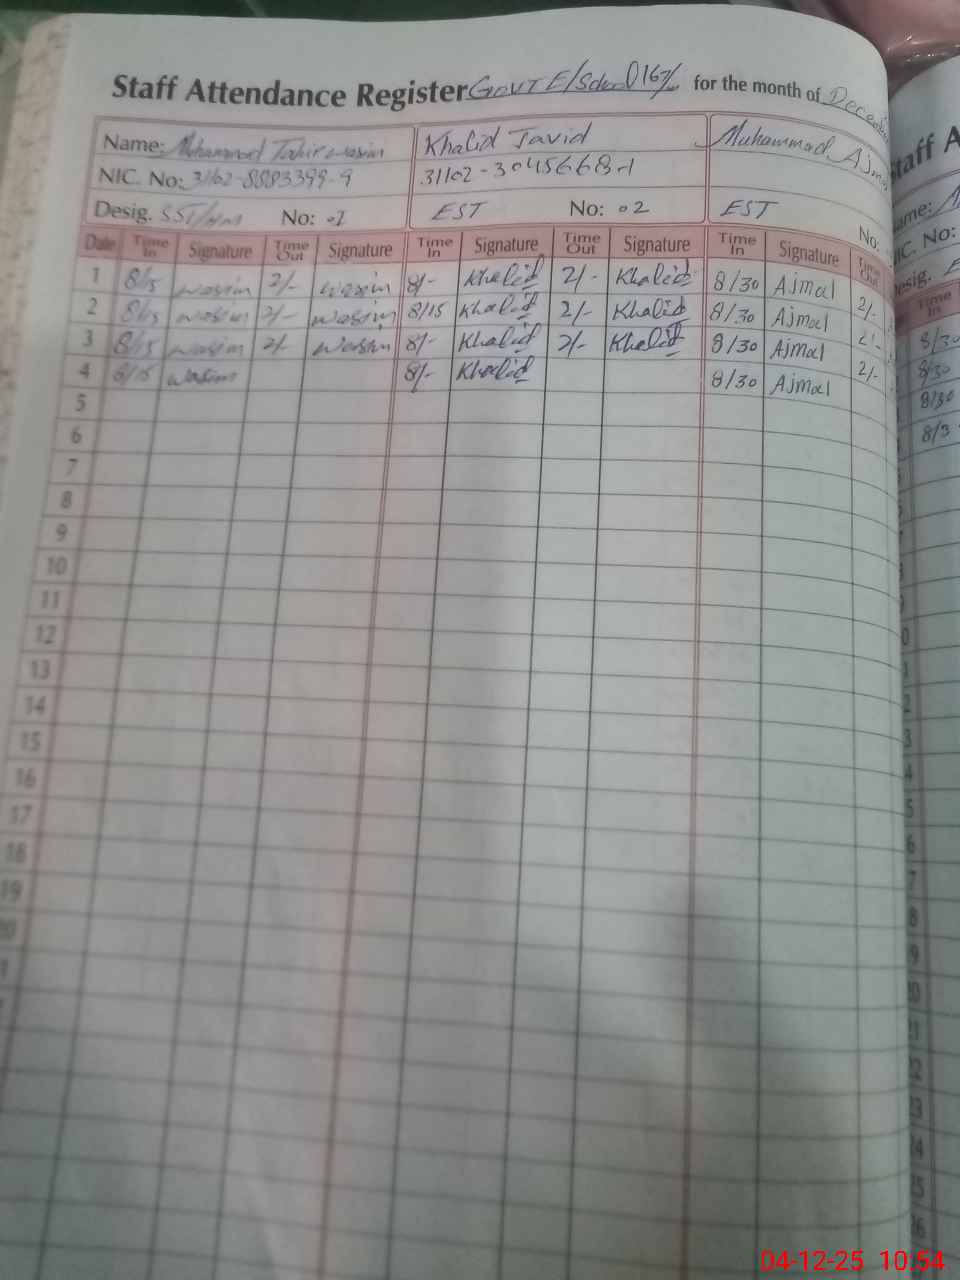 Staff Attendance Register Govt E/School 167/ for the month of December
Name: Muhammad Tahir wasim Khalid Javid Muhammad Ajmal
NIC. No: 31102-8883399-9 31102-3045668-1
Desig. SST/HM No: 01 EST No: 02 EST No:
Date Time In Signature Time Out Signature Time In Signature Time Out Signature Time In Signature Time Out
1 8/15 wasim 2/- wasim 8/- Khalid 2/- Khalid 8/30 Ajmal 2/-
2 8/15 wasim 2/- wasim 8/15 Khalid 2/- Khalid 8/30 Ajmal 2/-
3 8/15 wasim 2/- wasim 8/- Khalid 2/- Khalid 8/30 Ajmal 2/-
4 8/15 wasim 8/- Khalid 8/30 Ajmal
5
6
7
8
9
10
11
12
13
14
15
16
17
18
19
Staff A
Name:
NIC. No:
Desig.
Time In
8/30
8/30
8/30
8/3
04-12-25 10:54